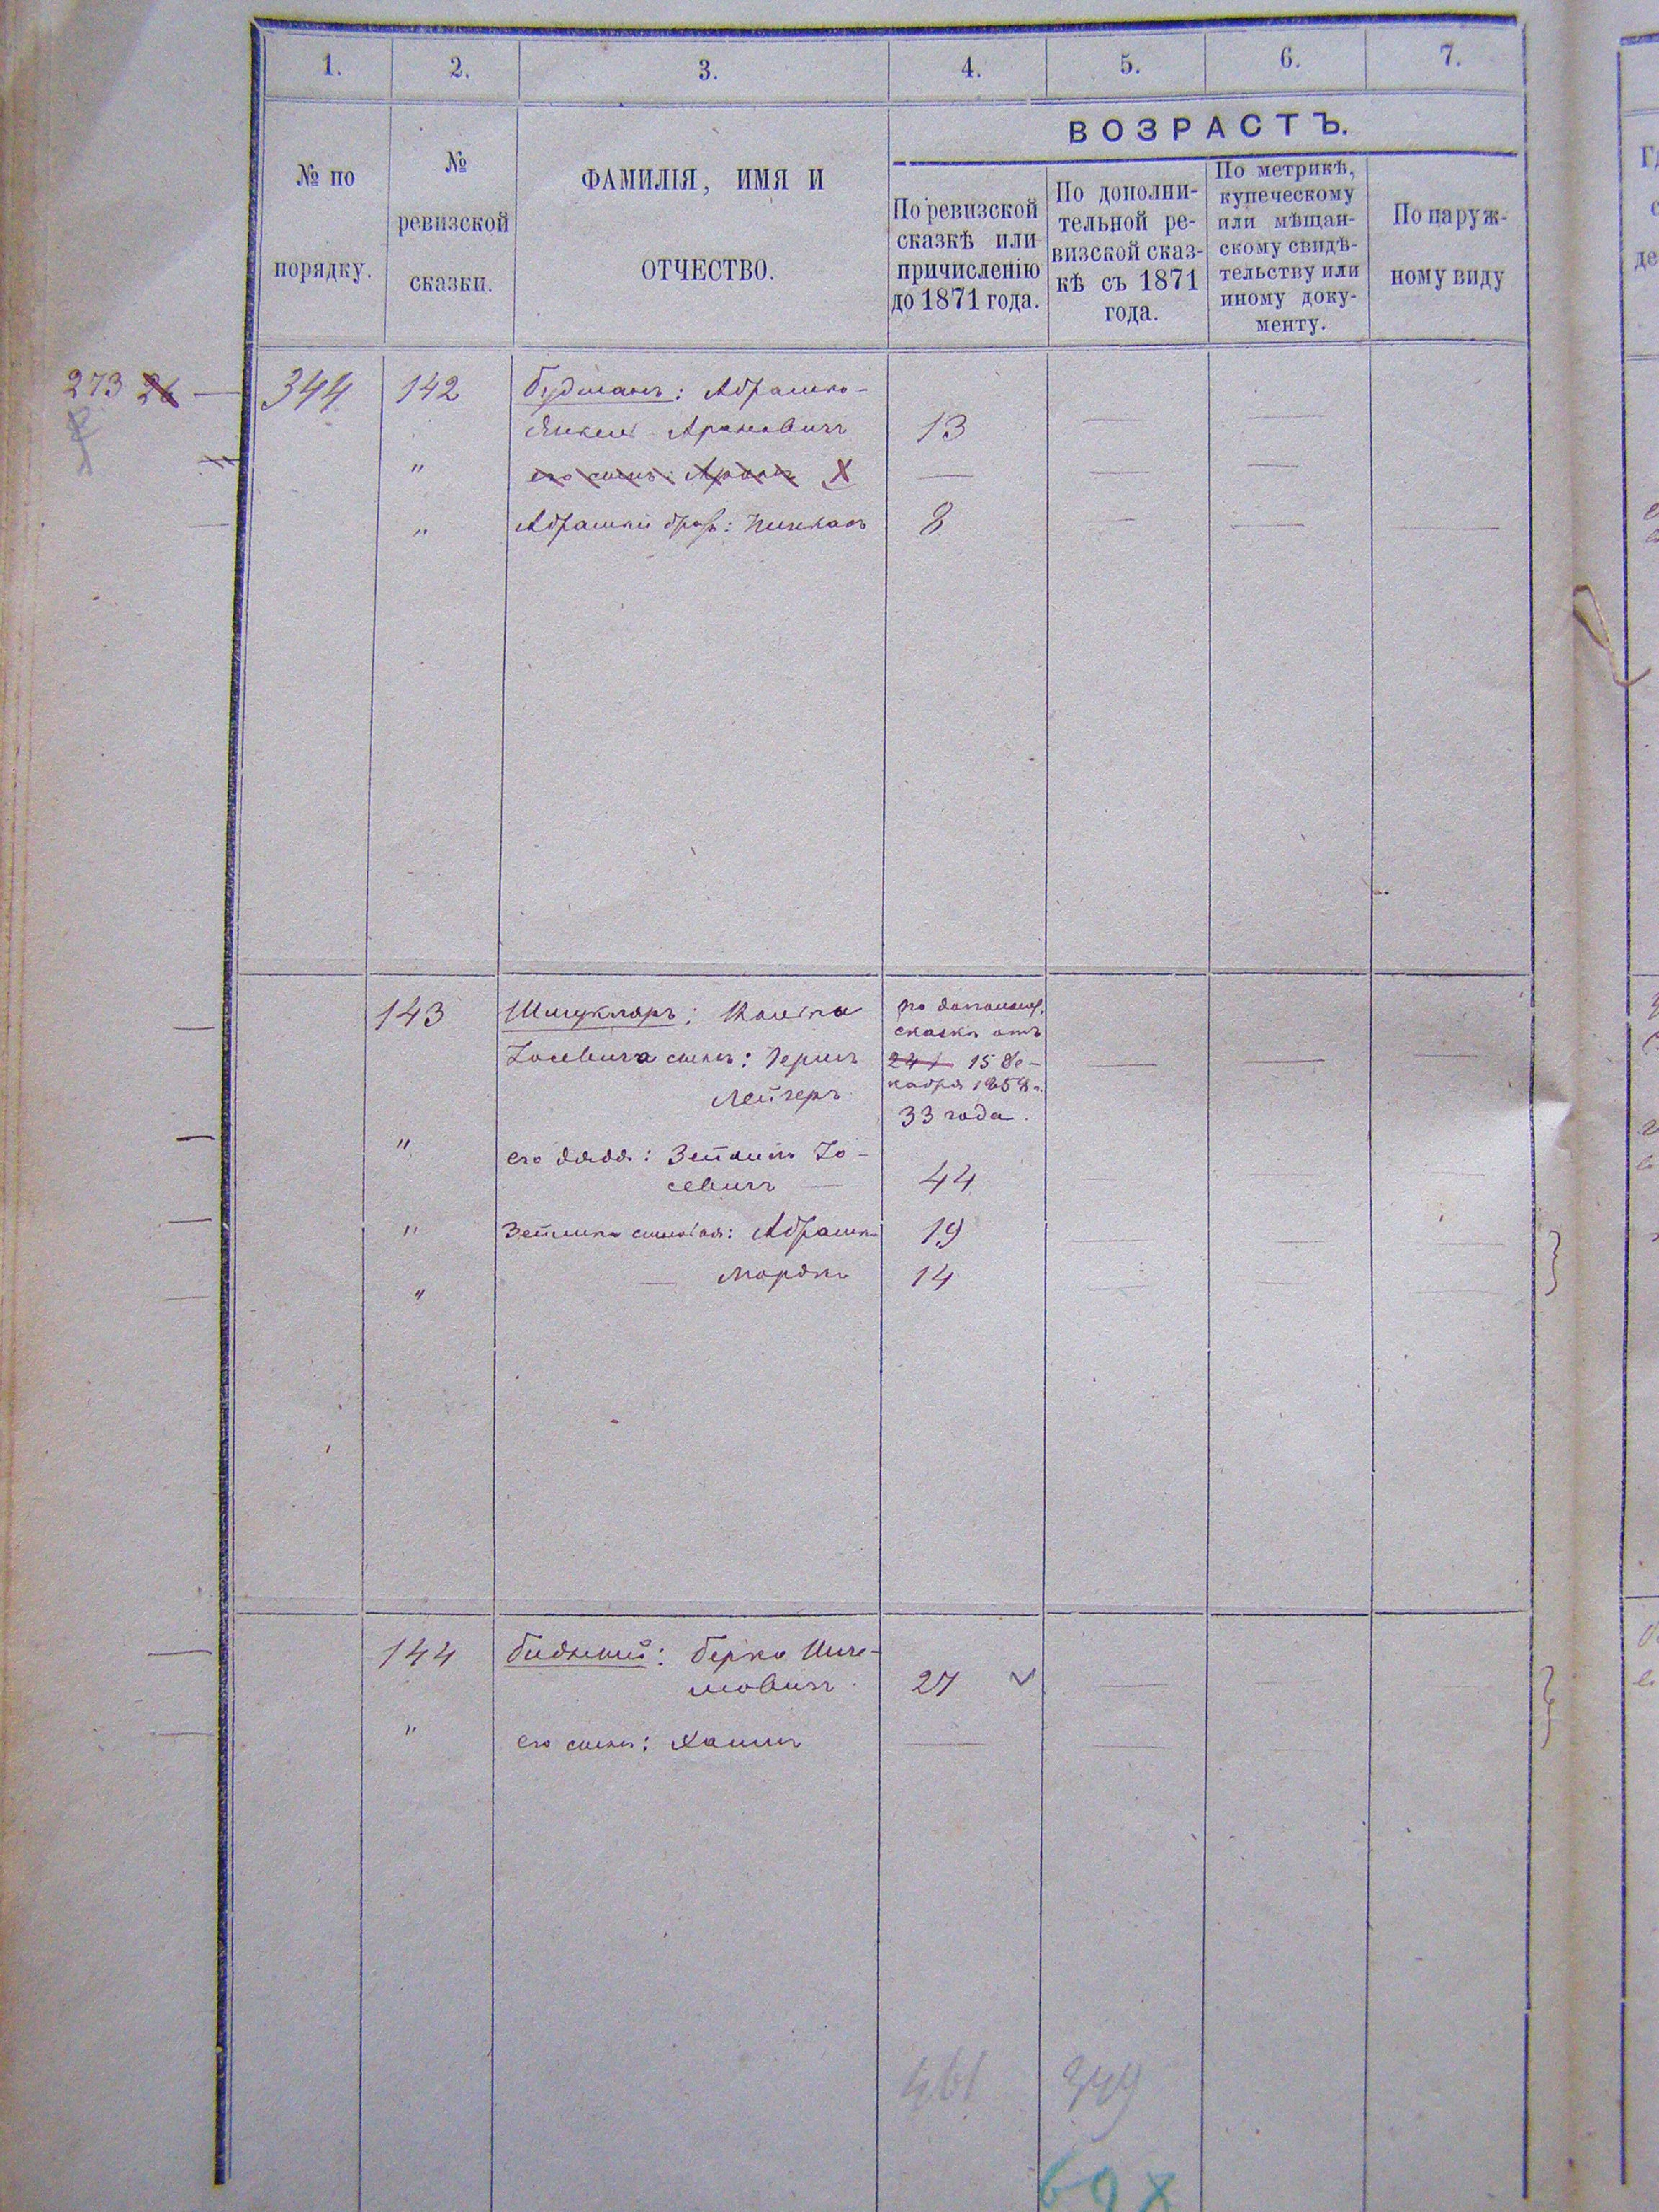 1. 2. 3. 4. 5. 6. 7.
№ по порядку.
№ ревизской сказки.
ФАМИЛІЯ, ИМЯ И
ОТЧЕСТВО.
ВОЗРАСТЪ.
По ревизской
сказкѣ или
причисленію
до 1871 года.
По дополни-
тельной ре-
визской сказ-
кѣ съ 1871
года.
По метрикѣ,
купеческому
или мѣщан-
скому свидѣ-
тельству или
иному доку-
менту.
По наруж-
ному виду
273 26 — 344 142 Будманъ: Абрашко-
Янкель Ароновичъ 13 — —
" его сынъ: Аронъ X — — —
" Абрашки братъ: Пинкасъ 8 — — —
143 Шмуклеръ: 
Іосевича сынъ: Гершъ
Лейзеръ
по дополнит.
сказкѣ отъ
15 Де-
кабря 1858 г.
33 года.
" его дядя: Зейликъ Іо-
севичъ — 44 — — —
" Зейлика сыновья: Абрашко 19 — — —
" — Мордко 14 — — —
144 Бидный: Берко
мовичъ 27 — —
" его сынъ: Хаимъ — — —
461 349